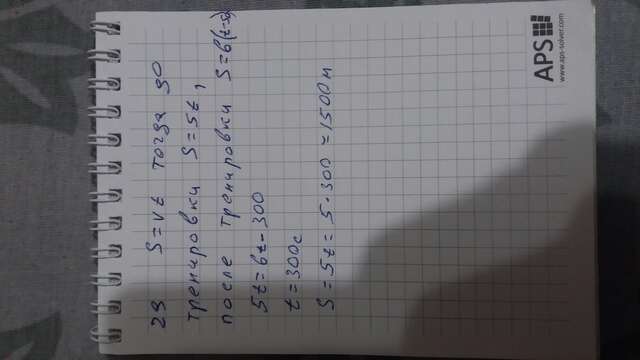 29 S=vt тогда до
тренировки S=5t,
после тренировки S=6(t-50)
5t=6t-300
t=300с
S=5t=5·300=1500м
APS
www.aps-solver.com